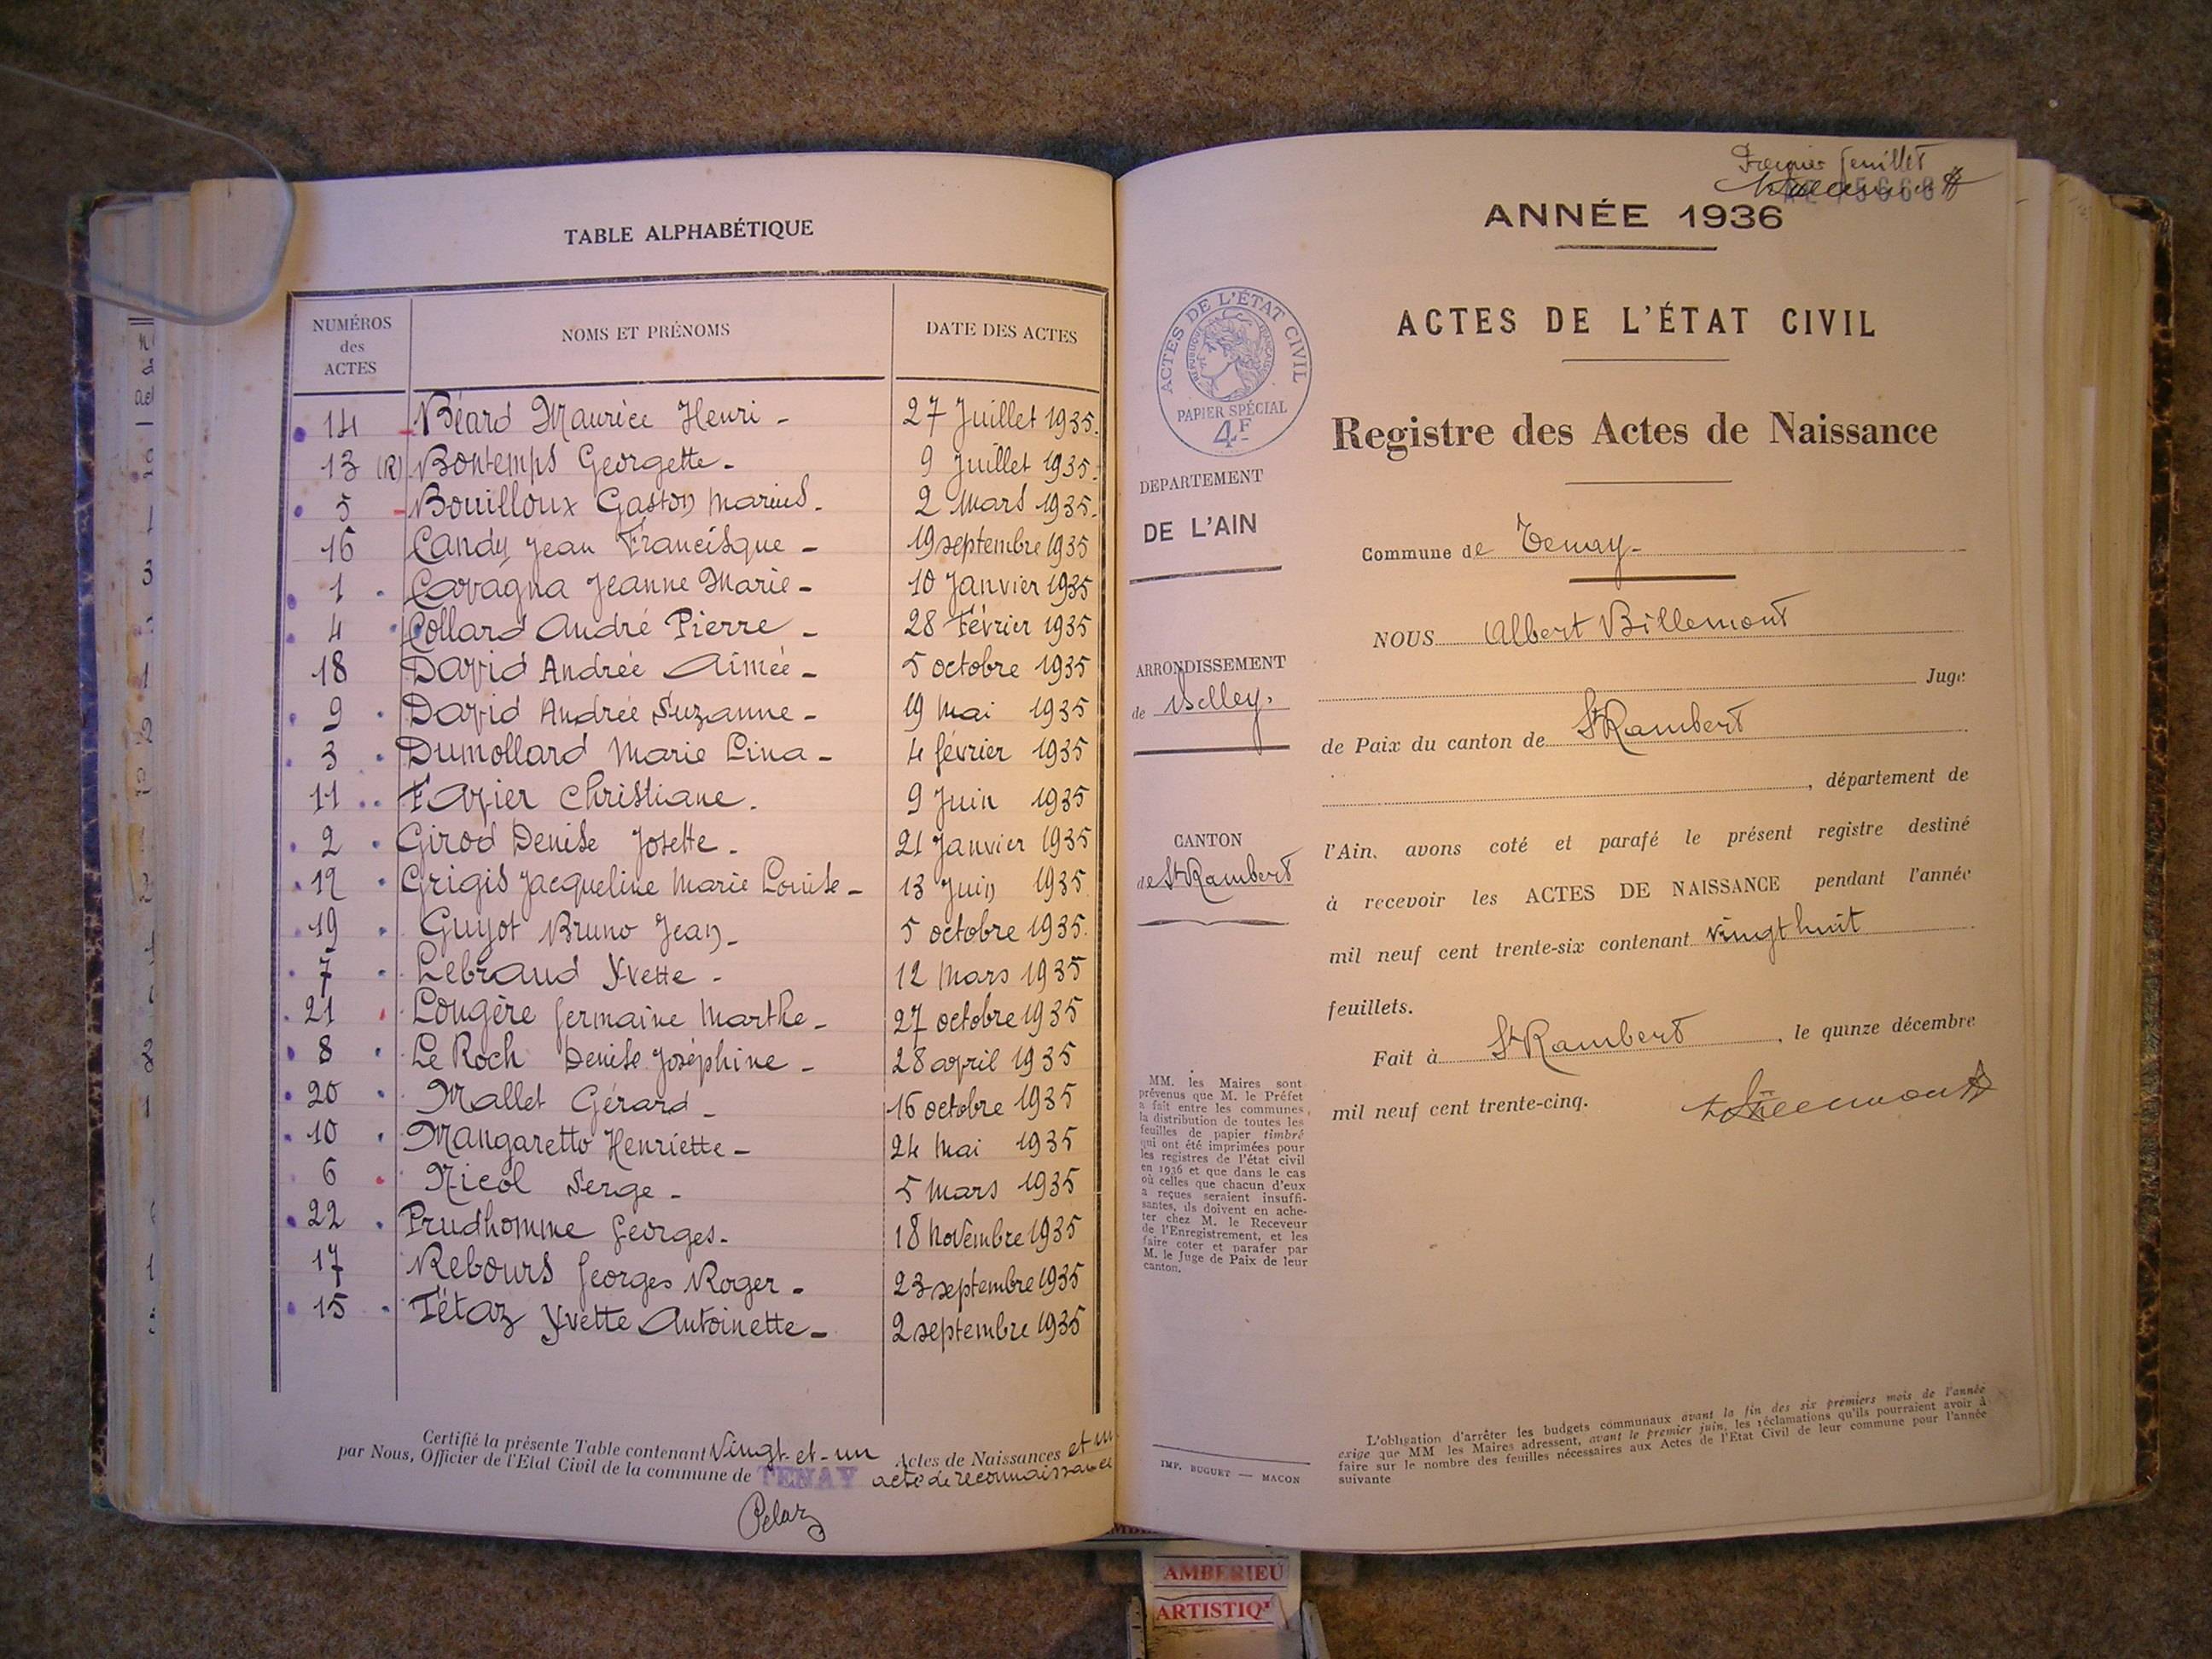 TABLE ALPHABÉTIQUE
NUMÉROS des ACTES NOMS ET PRÉNOMS DATE DES ACTES
14 Béard Maurice Henri - 27 Juillet 1935.
13 (R) Bontemps Georgette - 9 Juillet 1935.
5 Bouilloux Gaston Marius - 2 Mars 1935.
16 Candy Jean Francisque - 19 septembre 1935
1 Cavagna Jeanne Marie - 10 Janvier 1935
4 Collard André Pierre - 28 Février 1935
18 David Andrée Aimée - 5 octobre 1935
9 David Andrée Suzanne - 19 Mai 1935
3 Dumollard Marie Lina - 4 février 1935
11 Favier Christiane. 9 Juin 1935
2 Girod Denise Josette - 21 Janvier 1935
12 Grigis Jacqueline Marie Louise - 13 Juin 1935
19 Guyot Bruno Jean - 5 octobre 1935.
7 Lebraud Yvette - 12 Mars 1935
21 Longère Germaine Marthe - 27 octobre 1935
8 Le Roch Denise Joséphine - 28 avril 1935
20 Mallet Gérard - 16 octobre 1935
10 Mangaretto Henriette - 24 Mai 1935
6 Nicol Serge - 5 Mars 1935
22 Prudhomme Georges. 18 Novembre 1935
17 Rebours Georges Roger - 23 septembre 1935
15 Tétaz Yvette Antoinette - 2 septembre 1935
Certifié la présente Table contenant Vingt-et-un Actes de Naissances et un
par Nous, Officier de l'Etat Civil de la commune de TENAY acte de reconnaissance
Pelaz
Premier feuillet
ANNÉE 1936
ACTES DE L'ÉTAT CIVIL
Registre des Actes de Naissance
ACTES DE L'ÉTAT CIVIL
RÉPUBLIQUE FRANÇAISE
PAPIER SPÉCIAL
4F
DEPARTEMENT
DE L'AIN
ARRONDISSEMENT
de Belley.
CANTON
de St Rambert
Commune de Tenay-
NOUS Albert Billemont
Juge
de Paix du canton de St Rambert
, département de
l'Ain, avons coté et parafé le présent registre destiné
à recevoir les ACTES DE NAISSANCE pendant l'année
mil neuf cent trente-six contenant vingt huit
feuillets.
Fait à St Rambert, le quinze décembre
mil neuf cent trente-cinq.
MM. les Maires sont
prévenus que M. le Préfet
a fait entre les communes
la distribution de toutes les
feuilles de papier timbré
qui ont été imprimées pour
les registres de l'état civil
en 1936 et que dans le cas
où celles que chacun d'eux
a reçues seraient insuffi-
santes, ils doivent en ache-
ter chez M. le Receveur
de l'Enregistrement, et les
faire coter et parafer par
M. le Juge de Paix de leur
canton.
IMP. BUGUET — MACON
L'obligation d'arrêter les budgets communaux avant la fin des six premiers mois de l'année
exige que MM les Maires adressent, avant le premier juin, les réclamations qu'ils pourraient avoir à
faire sur le nombre des feuilles nécessaires aux Actes de l'Etat Civil de leur commune pour l'année
suivante
AMBERIEU
ARTISTIQ